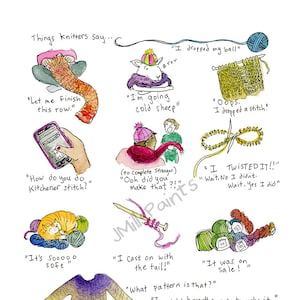 Things knitters say...
"I dropped my ball"
Brrr
"Let me finish
this row."
"I'm going
cold sheep"
"Oops.
I dropped a stitch"
"How do you do
Kitchener stitch?"
(to complete stranger)
"Ooh did you
make that?!"
"I TWISTED IT!!"
Wait. No I didn't.
Wait. Yes I did"
JMillPaints
"It's Sooooo
soft"
"I cast on with
the tail!"
"It was on
Sale!"
"What pattern is that?"